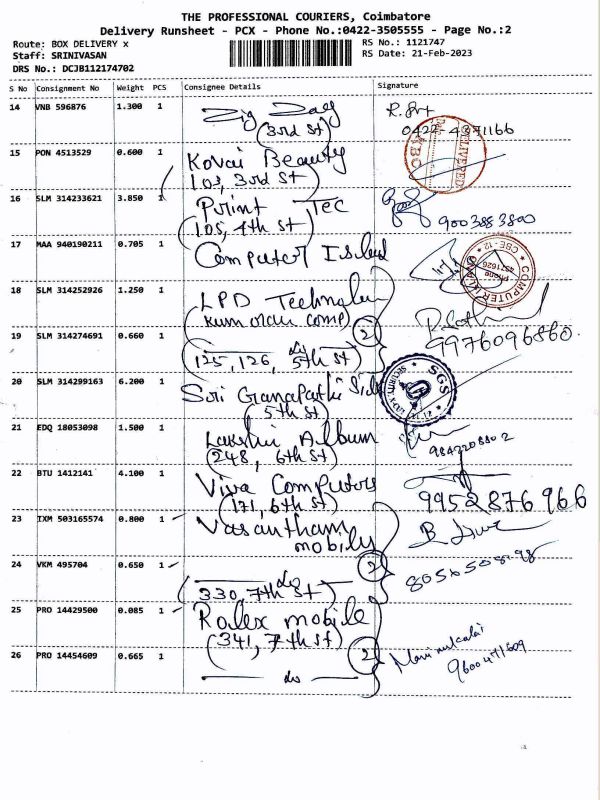 THE PROFESSIONAL COURIERS, Coimbatore
Delivery Runsheet - PCX - Phone No.:0422-3505555 - Page No.:2
Route: BOX DELIVERY x
RS No.: 1121747
Staff: SRINIVASAN
RS Date: 21-Feb-2023
DRS No.: DCJB112174702
S No Consignment No Weight PCS Consignee Details Signature
14 VNB 596876 1.300 1 Zig Zag
(3rd st) 0422 4371166
DELIVERED
15 PON 4513529 0.600 1 Kovai Beauty
103, 3rd st
16 SLM 314233621 3.850 1 Print Tec
(105, 4th st) 9003883800
17 MAA 940190211 0.705 1 Computer Island
CBE-12
Phone
4371626
18 SLM 314252926 1.250 1 LPD
Kumaran comp) 2
19 SLM 314274691 0.660 1 do 9976096860
(125, 126, 5th st)
20 SLM 314299163 6.200 1 Sri Ganapathi
(5th st)
SGS
SECURITY
21 EDQ 18053098 1.500 1 Lakshmi Album
(248, 6th st) 9842208802
22 BTU 1412141 4.100 1 Viva Computers
(171, 6th st) 9952876966
23 IXM 503165574 0.800 1 Vasantham
mobily
24 VKM 495704 0.650 1 do 2
330, 7th st)
25 PRO 14429500 0.085 1 Rolex mobile
(341, 7th st)
26 PRO 14454609 0.665 1 do 2
9600471609